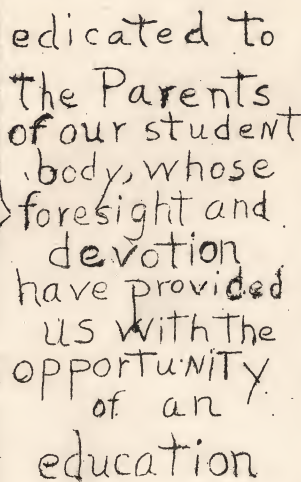 edicated to
the Parents
of our student
body, whose
foresight and
devotion
have provided
us with the
opportunity
of an
education